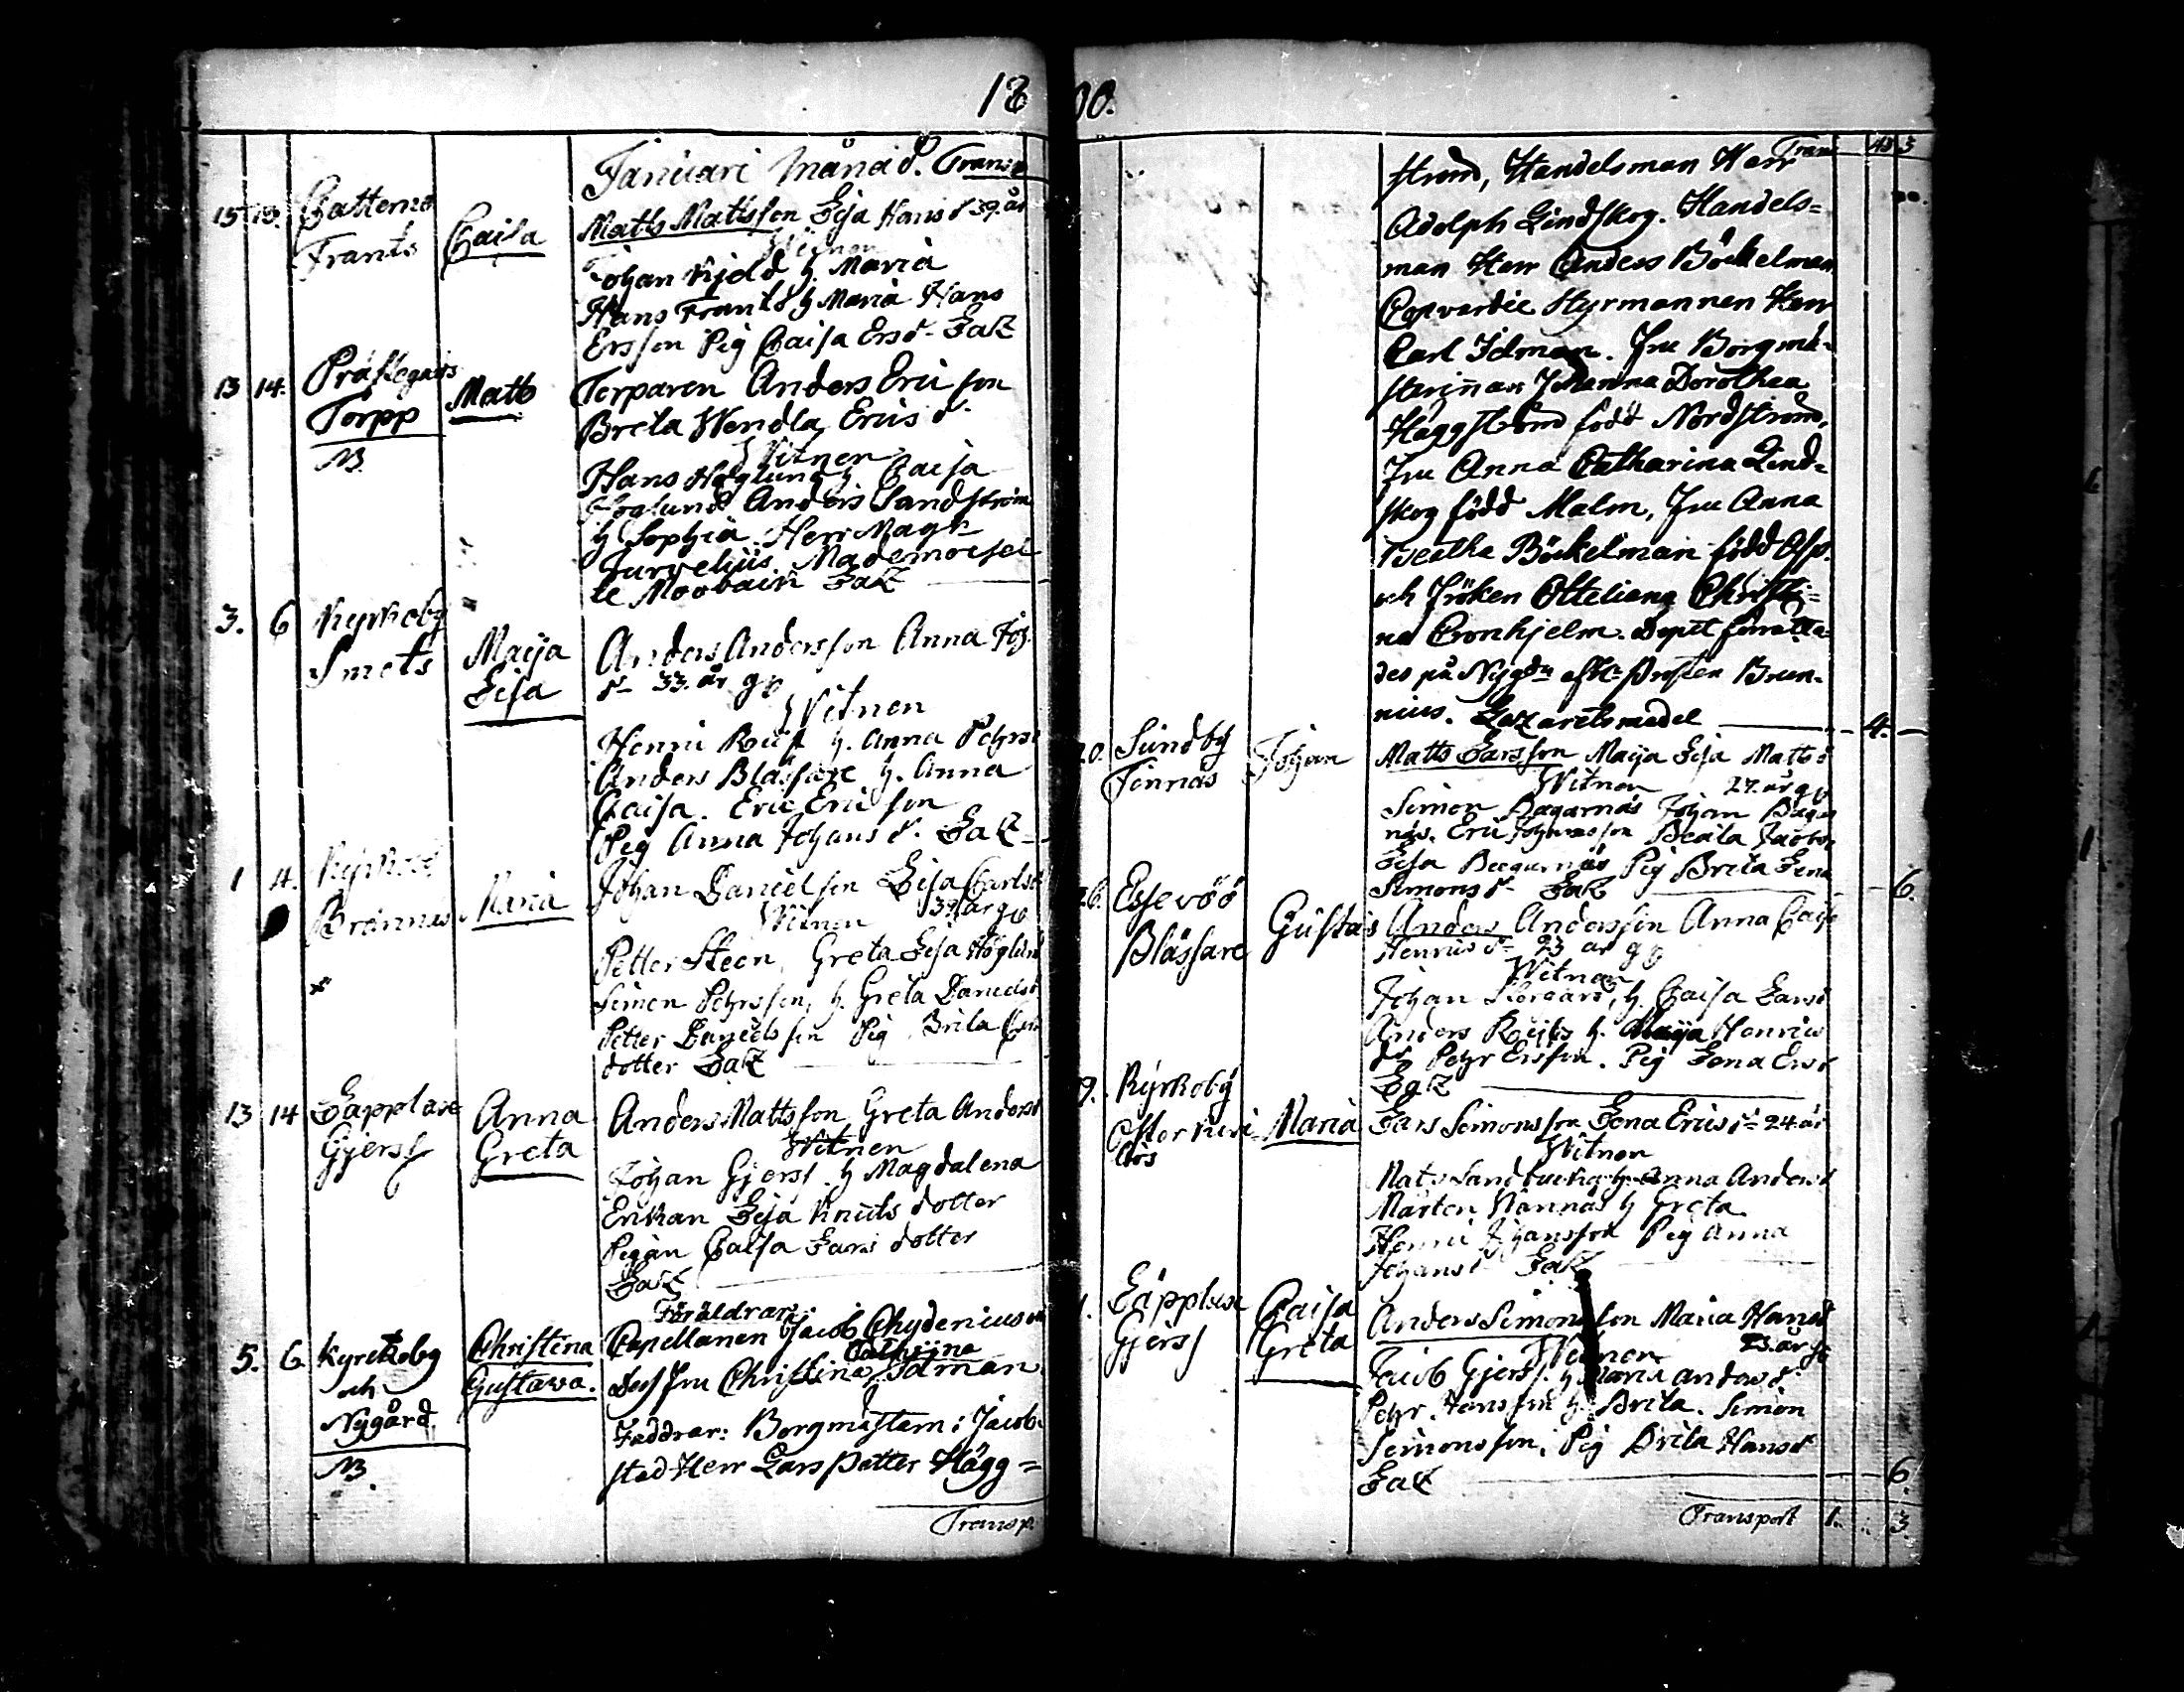 1800.
Januari Månad. Transp
15 18. Katternö Frants Caisa Matts Mattsson Lisa Hans d 39. år
Witnen
Johan Kjeld h Maria
Hans Frants h Maria Hans
Ersson Pig Caisa Ers d. Laz
13 14. Prästegårds Torpp Matts Torparen Anders Ericsson
NB.
Breta Wendla Erics d.
Witnen
Hans Höglund h Caisa
Höglund Anders Sandström
h Sophia. Herr Mag
Mademoisel
le Laz
3. 6 Kyrkoby Smets Maija Lisa Anders Andersson Anna Joh
d 33. år g
Witnen
Henric h. Anna Pehrs
Anders Blässare h. Anna
Caisa. Eric Ericsson
Pig Anna Johans d. Laz
1 4. Kyrkob Brännäs Maria Johan Danielsson Lisa Carls
Witnen 39 år g
Petter Steen, Greta Lisa Höglund
Simon Pehrsson, h. Greta Daniels
Petter Danielsson Pig Brita
dotter Laz
13 14 Lappluxe Gjers Anna Greta Anders Mattsson Greta Anders
Witnen
Johan Gjers. h Magdalena
Enkan Lisa Knuts dotter
Pigan Caisa Lars dotter
Laz
Föräldrar:
5. 6. Kyrckoby och Nygård. Christina Gustava. Capellanen Jacob Chydenius o
NB.
Cathrina
Dess Fru Christina Idman
Faddrar: Borgmästarn i Jacob-
stad Herr Lars Petter Hägg=
Transp
Trans 45 3
ström, Handelsman Herr
Adolph Lindskog. Handels=
man Herr Anders Böckelman
Copverdie Styrmannen Herr
Carl Idman. Fru Borgmä-
sterinnan Johanna Dorothea
Häggström född Nordström,
Fru Anna Catharina Lind=
skog född Malm, Fru Anna
Beatha Böckelman född Asp.
och Fröken Otteliana Christi=
na Cronhjelm. Dopet förrätta-
des på Nygdn af Hr Prosten Brun-
nius. Lazarets medel 4.
20. Sundby Finnäs Johan Matts Larsson Maija Lisa Matts d
Witnen 27. år g
Simon Bagarnäs Johan Bagar
näs. Eric Johansson Beata Jacobs
Lisa Pig Brita Lena
Simons d Laz 6.
26. Essevöö Blässare Gustav Anders Andersson Anna Caisa
Henrics d 23 år g
Witnen
Johan h. Caisa Lars d
Anders h. Maija Henrics
d Pehr Ersson. Pig Lena Ers d
Laz
9. Kyrkoby Maria Lars Simonsson Lena Erics d 24 år
Witnen
Mats h. Anna Anders d
Mårten Wännäs h Greta
Henric Johansson Pig Anna
Johans d Laz
1. Lappluxe Gjers Caisa Greta Anders Simonsson Maria Hans d
Witnen 23. år g
Jacob Gjers. h Maria Anders d
Pehr Hansson h. Brita. Simon
Simonsson, Pig Brita Hans d
Laz 6.
Transport 1. 3.